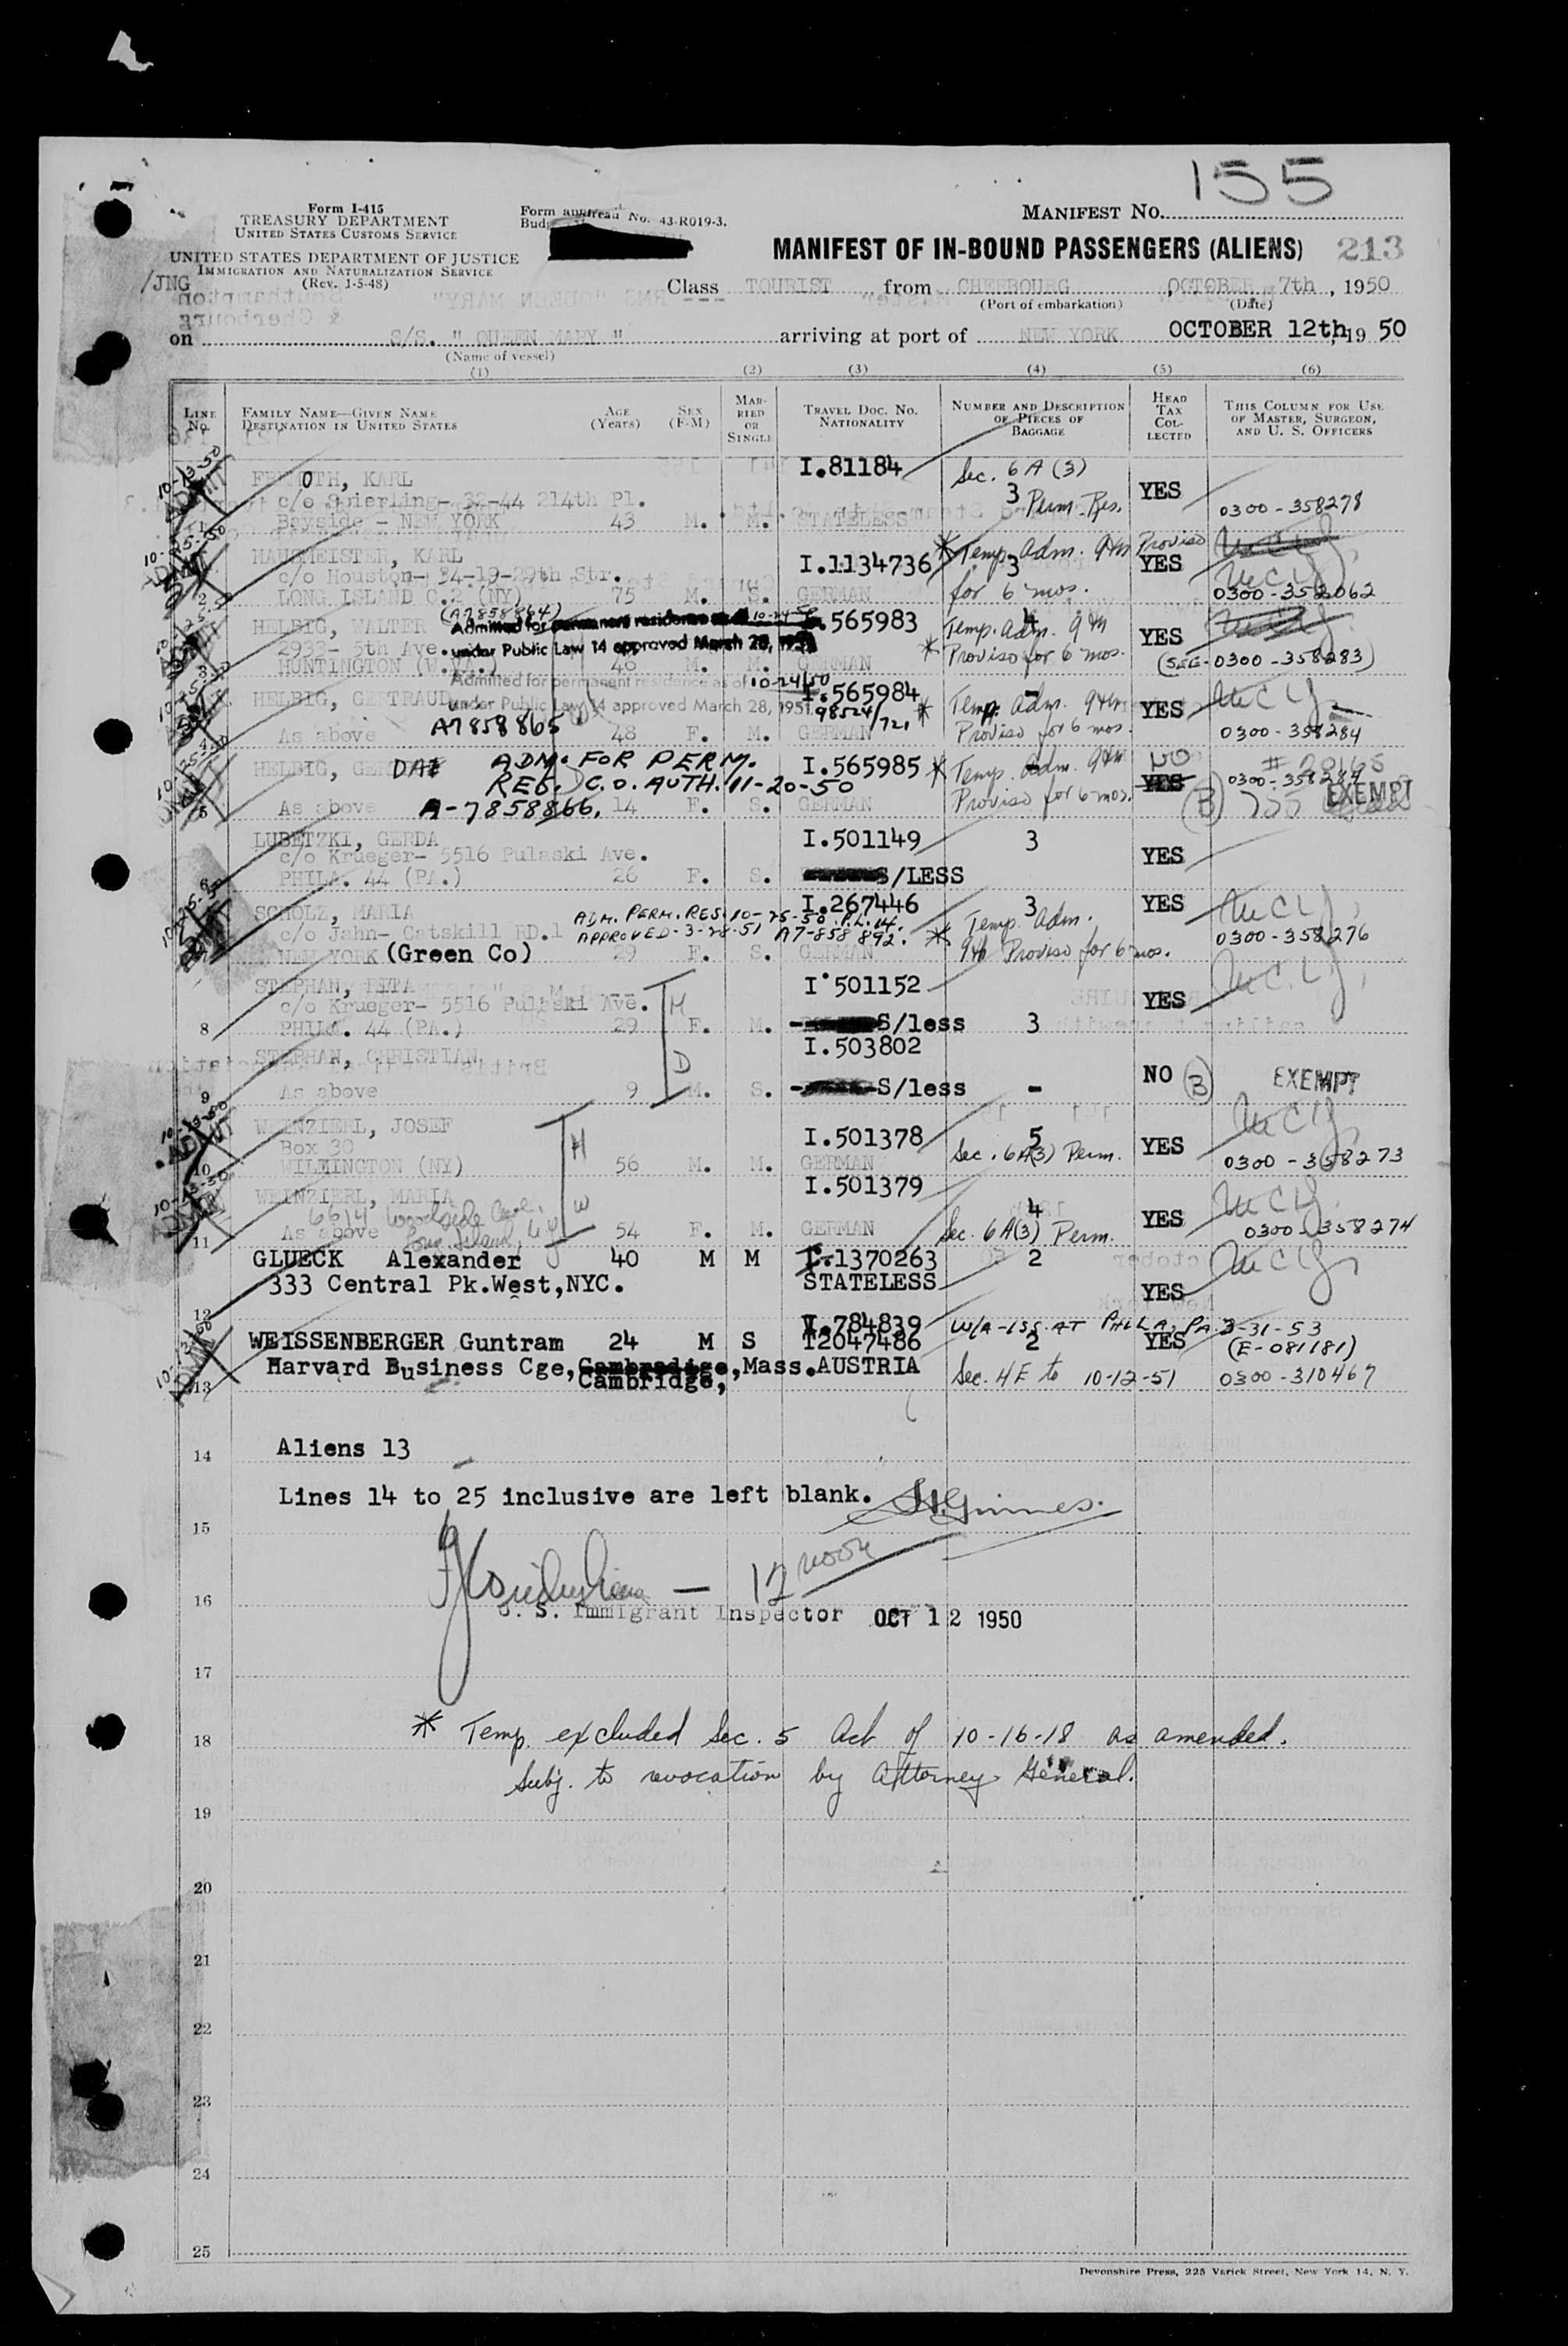 155
Form I-415
TREASURY DEPARTMENT
UNITED STATES CUSTOMS SERVICE
UNITED STATES DEPARTMENT OF JUSTICE
IMMIGRATION AND NATURALIZATION SERVICE
(Rev. 1-5-48)
Form approved
No. 43-R019-3.
MANIFEST No.
MANIFEST OF IN-BOUND PASSENGERS (ALIENS) 213
/JNG
Class TOURIST from CHERBOURG, OCTOBER 7th, 1950
(Port of embarkation) (Date)
on S/S. " QUEEN MARY " arriving at port of NEW YORK OCTOBER 12th, 19 50
(Name of vessel)
(1) (2) (3) (4) (5) (6)
LINE No. FAMILY NAME—GIVEN NAME DESTINATION IN UNITED STATES AGE (Years) SEX (F-M) MARRIED OR SINGLE TRAVEL DOC. No. NATIONALITY NUMBER AND DESCRIPTION OF PIECES OF BAGGAGE HEAD TAX COLLECTED THIS COLUMN FOR USE OF MASTER, SURGEON, AND U. S. OFFICERS
10-13-50 ADMIT
KARL I.81184 Sec. 6A(3)
c/o Spierling- 32-44 214th Pl. 3 Perm. Res. YES 0300-358278
1 Bayside - NEW YORK 43 M. M. STATELESS
HAUSMEISTER, KARL I.1134736 * Temp. Adm. 9th Proviso
c/o Houston- 34-19-29th Str. 3 YES
2 LONG ISLAND C.2 (NY) 75 M. S. GERMAN for 6 mos. 0300-358062
(A7858864)
HELBIG, WALTER Admitted for permanent residence as of 10-24-50 I.565983 Temp. Adm. 9th YES
2933- 5th Ave. under Public Law 14 approved March 28, 1951 * Proviso for 6 mos. (SEG-0300-358283)
3 HUNTINGTON (W.VA.) 46 M. M. GERMAN
Admitted for permanent residence as of 10-24/50
HELBIG, GERTRAUD I.565984 - Temp. Adm. 9th YES
under Public Law 14 approved March 28, 1951. 98524/721 *
4 As above A7858865 48 F. M. GERMAN Proviso for 6 mos. 0300-358284
HELBIG, GERDA ADM. FOR PERM. I.565985 * Temp. Adm. 9th NO # 20165
REG. C.O. AUTH. 11-20-50 YES 0300-358284
5 As above A-7858866. 14 F. S. GERMAN Proviso for 6 mos. (B) EXEMPT
LUBETZKI, GERDA I.501149 3
c/o Krueger- 5516 Pulaski Ave. YES
6 PHILA. 44 (PA.) 26 F. S. S/LESS
SCHOLZ, MARIA I.267446 3 YES
ADM. PERM. RES. 10-25-50 P.L. 14. Temp. Adm.
c/o Jahn- Catskill RD.1 APPROVED-3-28-51 A7-858 892. * 0300-358276
7 NEW YORK (Green Co) 29 F. S. GERMAN 9th Proviso for 6 mos.
STEPHAN, I.501152
c/o Krueger- 5516 Pulaski Ave. M YES
8 PHILA. 44 (PA.) 29 F. M. S/less 3
STEPHAN, CHRISTIAN D I.503802
NO (B) EXEMPT
9 As above 9 M. S. S/less -
10-13-50 ADMIT
WEINZIERL, JOSEF H I.501378 5 YES
Box 30
10 WILMINGTON (NY) 56 M. M. GERMAN Sec. 6A(3) Perm. 0300-358273
WEINZIERL, MARIA W I.501379 4
6614 Woodside Ave. YES
11 As above Long Island, N Y 54 F. M. GERMAN Sec. 6A(3) Perm. 0300-358274
GLUECK Alexander 40 M M 1370263 2
333 Central Pk.West,NYC. STATELESS
12 YES
V.784839 W/A-ISS. AT PHILA, PA. 3-31-53
WEISSENBERGER Guntram 24 M S I2047486 2 YES (E-081181)
Harvard Business Cge, Cambradige, Mass. AUSTRIA Sec. 4E to 10-12-51 0300-310467
13 Cambridge,
14 Aliens 13
Lines 14 to 25 inclusive are left blank.
15
12 noon
16 U. S. Immigrant Inspector OCT 12 1950
17
18 * Temp. excluded Sec. 5 Act of 10-16-18 as amended.
Subj. to revocation by Attorney General.
19
20
21
22
23
24
25
Devonshire Press, 225 Varick Street, New York 14, N. Y.